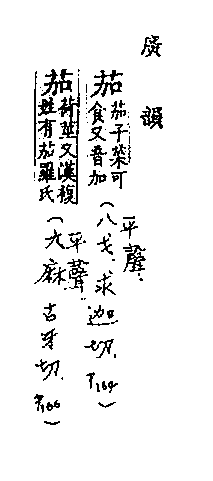 廣韻
茄 茄子菜可食又音加 (平聲.八戈.求迦切. P164)
茄 荷莖又漢複姓有茄羅氏 (平聲 九麻 古牙切. P166)